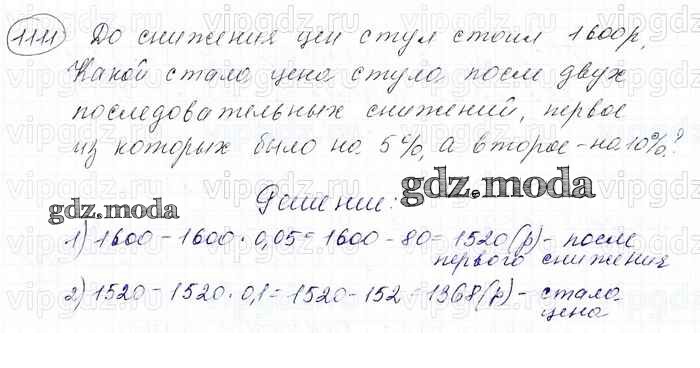 1111 До снижения цен стул стоил 1600р.
Какой стала цена стула после двух
последовательных снижений, первое
из которых было на 5%, а второе - на 10%?
Решение:
gdz.moda
gdz.moda
1) 1600 - 1600 · 0,05 = 1600 - 80 = 1520 (р) - после
первого снижения
2) 1520 - 1520 · 0,1 = 1520 - 152 = 1368 (р) - стала
цена